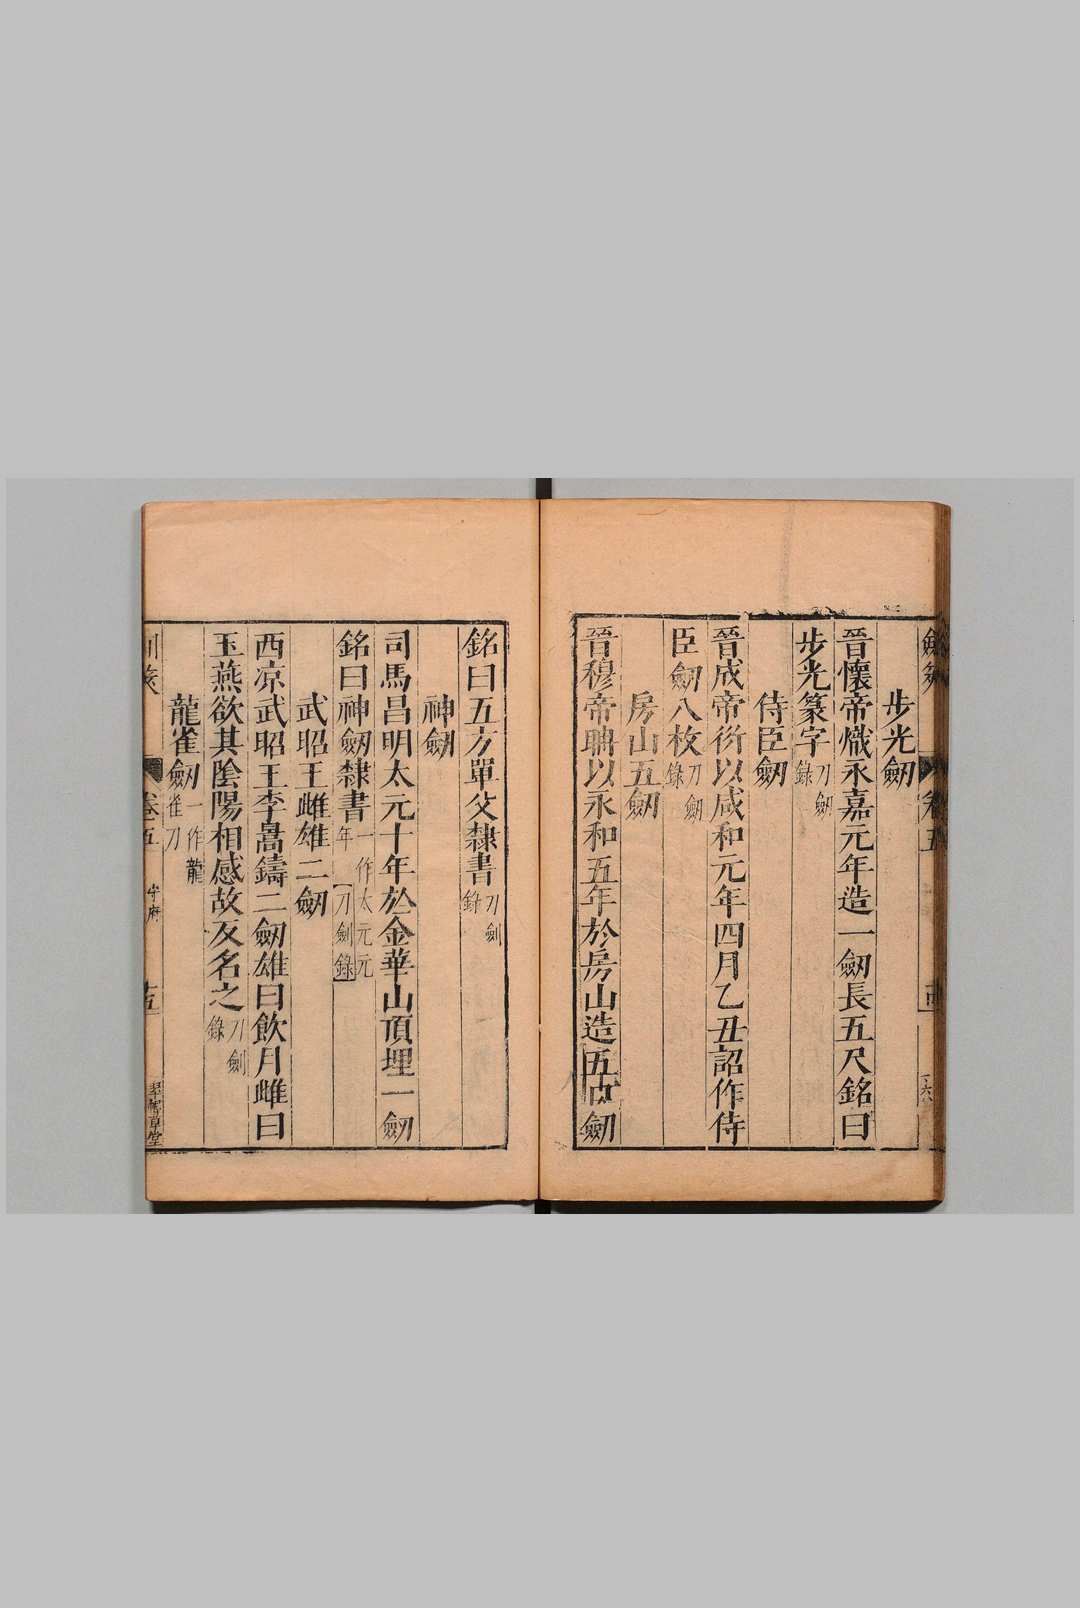 步光劒
晉懷帝熾永嘉元年造一劒長五尺銘曰
步光篆字刀劒錄
侍臣劒
晉成帝衍以咸和元年四月乙丑詔作侍
臣劒八枚刀劒錄
房山五劒
晉穆帝聃以永和五年於房山造五口劒
銘曰五方單父隸書刀劍錄
神劒
司馬昌明太元十年於金華山頂埋一劒
銘曰神劒隸書一作太元元年刀劍錄
武昭王雌雄二劒
西凉武昭王李暠鑄二劒雄曰飲月雌曰
玉燕欲其陰陽相感故反名之刀劍錄
龍雀劒一作龍雀刀
卷五
十五
翠幄草堂